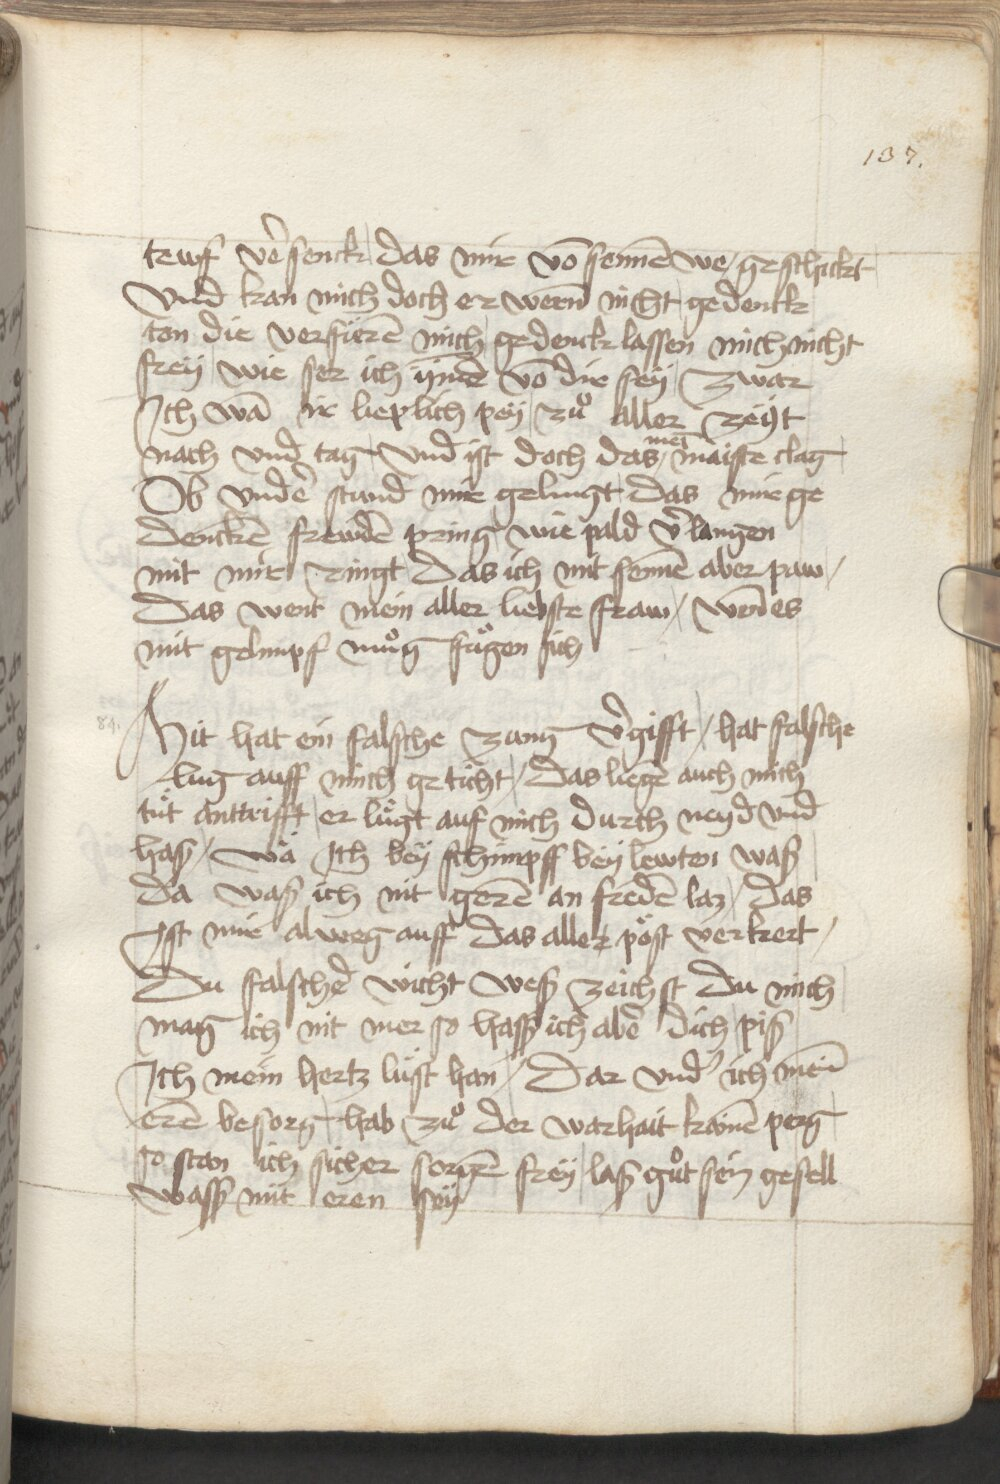 137.
teuf v̾senck / das mir vō sennē we / geschickt
Vnd kan mich doch er weern̄ nicht gedenck
ton die verfürē mich / gedenck lassen mich nicht
freÿ / wie fer ich ÿmer vō dir seÿ / zwar
Ich wā ir lieplich peÿ / zů aller zeÿt
nach vnd tag / vnd ist doch das mei maiste clag
Ob vnde̾ stund mir gelingt das mir ge
denckē frewdē pring / wie pald v̾langen
mit mir ringt / Das ich mit sennē aber paw /
Das went mein aller liebste fraw / won̄ es
mit gelimpf můg fůgen sich
84.
Mit hat ein falsche zung v̾gifft / hat falsche
lug auff mich geticht / Das liegē auch mich
tüt anttrifft / er lügt auf mich durch neyd vnd
haß / wā Ich beÿ schimpff beÿ lewten waß
da waß ich nit gerē an fredē laz / Das
Ist mir alweg auff das aller pöst verkert /
Du falsche̾ wicht weß zeichst du mich
mag ich nit mer so haß ich abe̾ dich piß
Ich mein hertz lüst han / Dar vnd̾ ich mein̄
erē besorg / hab zů der warhait kainē perg
so stan ich sicher sorgē freÿ / laß gůt sein gesell
waß mit eren seÿ